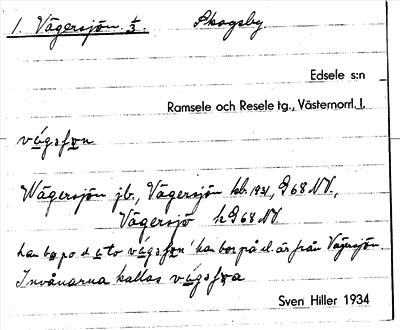 1. Vägersjön. 1/3. Skogsby.
Edsele s:n
Ramsele och Resele tg., Västernorrl. l.
vágsfo̱n
Wägersjön jb., Vägersjön kbr 1931, G 68 NV.,
Vägersjö h G 68 NV
han bo̱ po d a̱to vágsfo̱n 'han bor på d. är från Vägersjön.
Invånarna kallas vágsfo̱a
Sven Hiller 1934